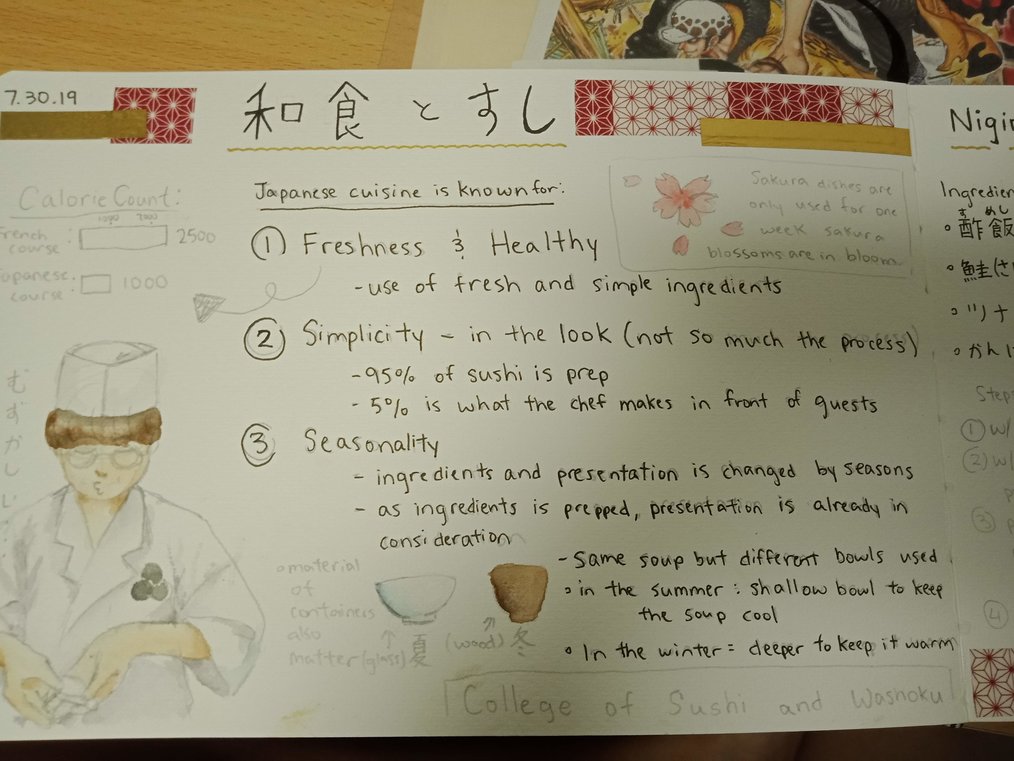 7.30.19
和食とすし
Calorie Count:
1000 2000
French course: 2500
Japanese course: 1000
Japanese cuisine is known for:
Sakura dishes are
only used for one
week sakura
blossoms are in bloom.
① Freshness & Healthy
- use of fresh and simple ingredients
② Simplicity - in the look (not so much the process)
- 95% of sushi is prep
- 5% is what the chef makes in front of guests
③ Seasonality
- ingredients and presentation is changed by seasons
- as ingredients is prepped, presentation is already in
consideration
- Same soup but different bowls used
in the summer: shallow bowl to keep
the soup cool
In the winter = deeper to keep it warm
material
of
containers
also
matter (glass) 夏 (wood) 冬
むずかしい
College of Sushi and Washoku
Nigir
Ingredien
すめし
酢飯
鮭(さ
ツナ
かん
Step
① w/
② w/
③
④